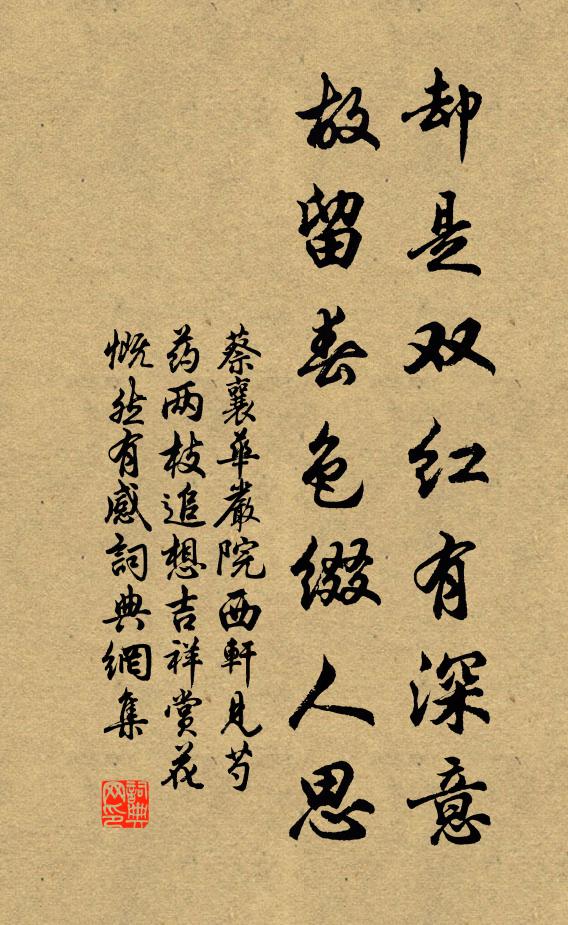 却是双红有深意
故留春色缀人思
蔡襄华嚴院西軒見芍
药两枝追想吉祥賞花
慨然有感詞典網集
詞典网印